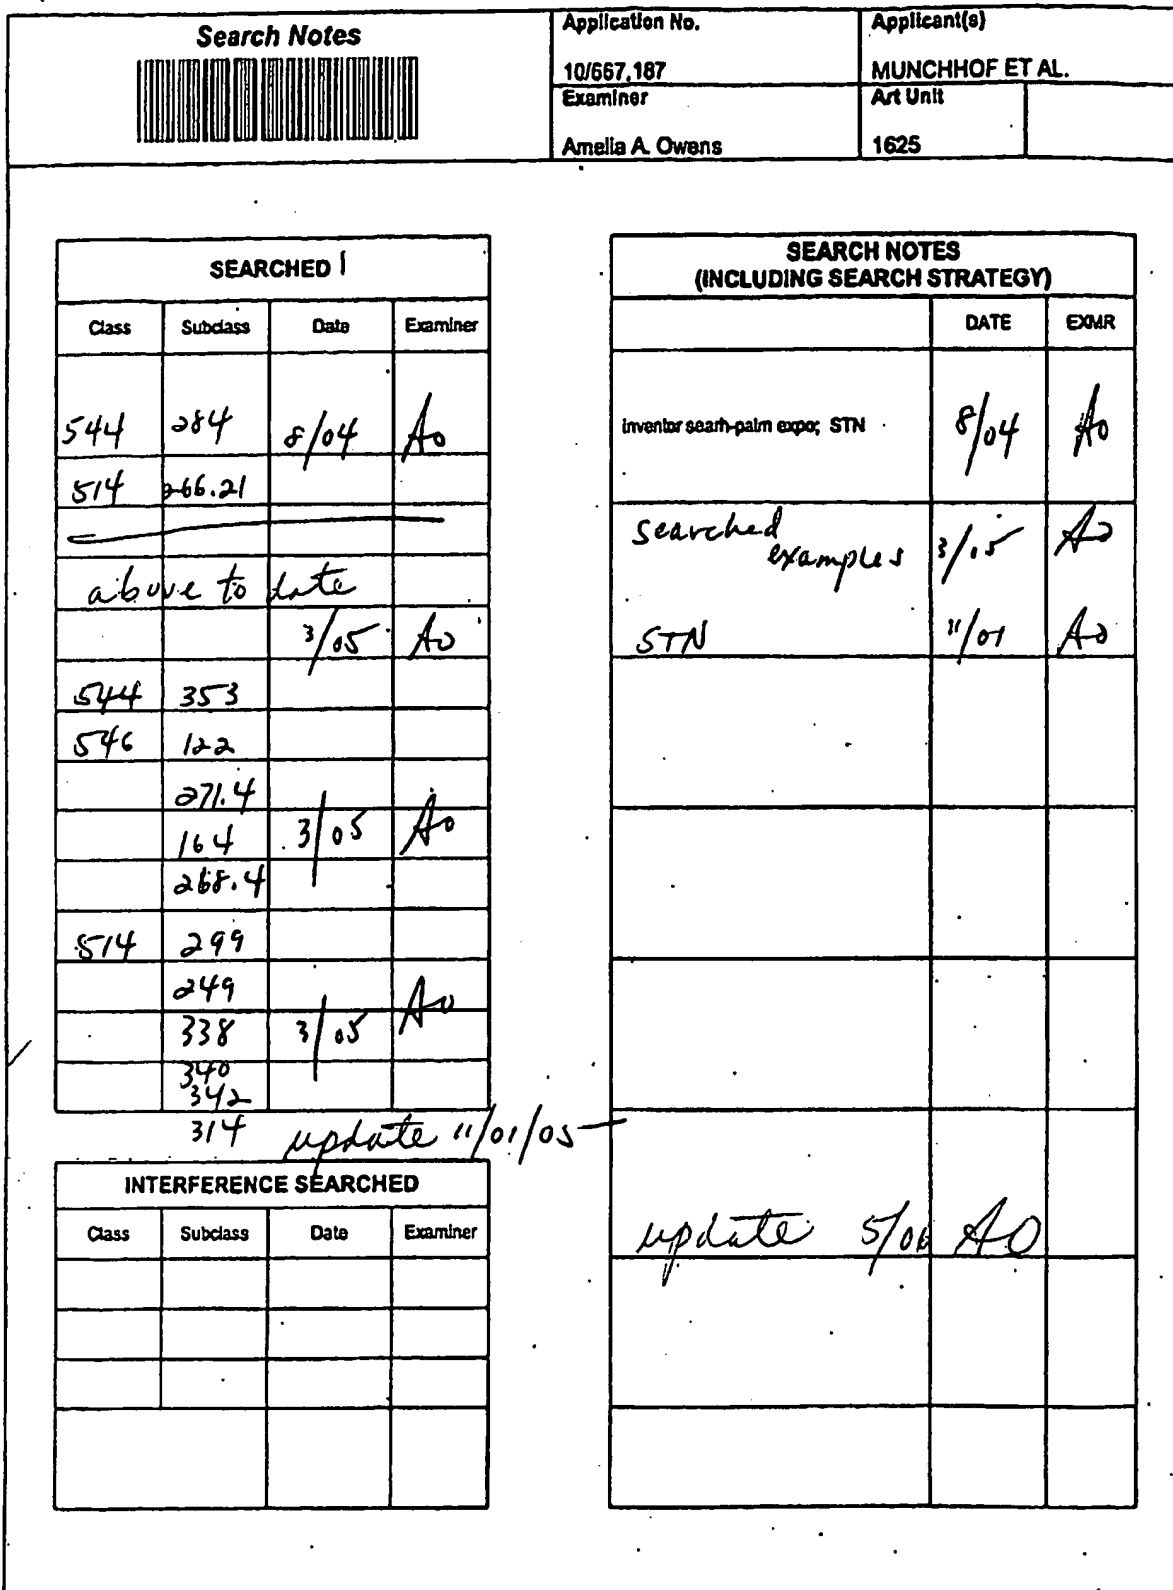 Search Notes
Application No.
10/667,187
Applicant(s)
MUNCHHOF ET AL.
Examiner
Amelia A. Owens
Art Unit
1625
SEARCHED
Class Subclass Date Examiner
544 284 8/04 AO
514 266.21
above to date
3/05 AO
544 353
546 122
271.4
164 3/05 AO
268.4
514 299
249
338 3/05 AO
340
342
314 update 11/01/05
INTERFERENCE SEARCHED
Class Subclass Date Examiner
SEARCH NOTES
(INCLUDING SEARCH STRATEGY)
DATE EXMR
inventor searh-palm expo; STN 8/04 AO
searched
examples 3/05 AO
STN 11/01 AO
update 5/06 AO